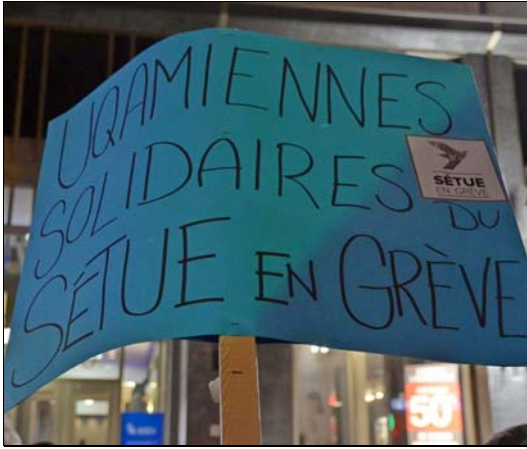 UQAMIENNES
SOLIDAIRES DU
SÉTUE EN GRÈVE
SÉTUE
EN GRÈVE
50